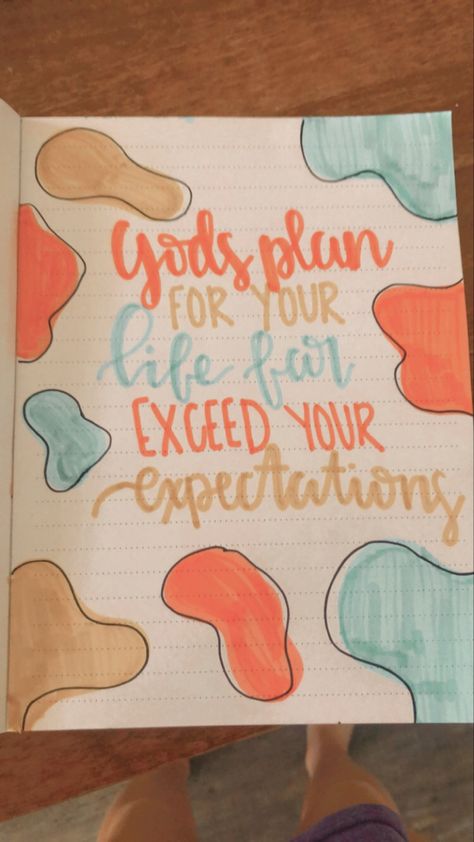 Gods plan
FOR YOUR
life far
EXCEED YOUR
expectations